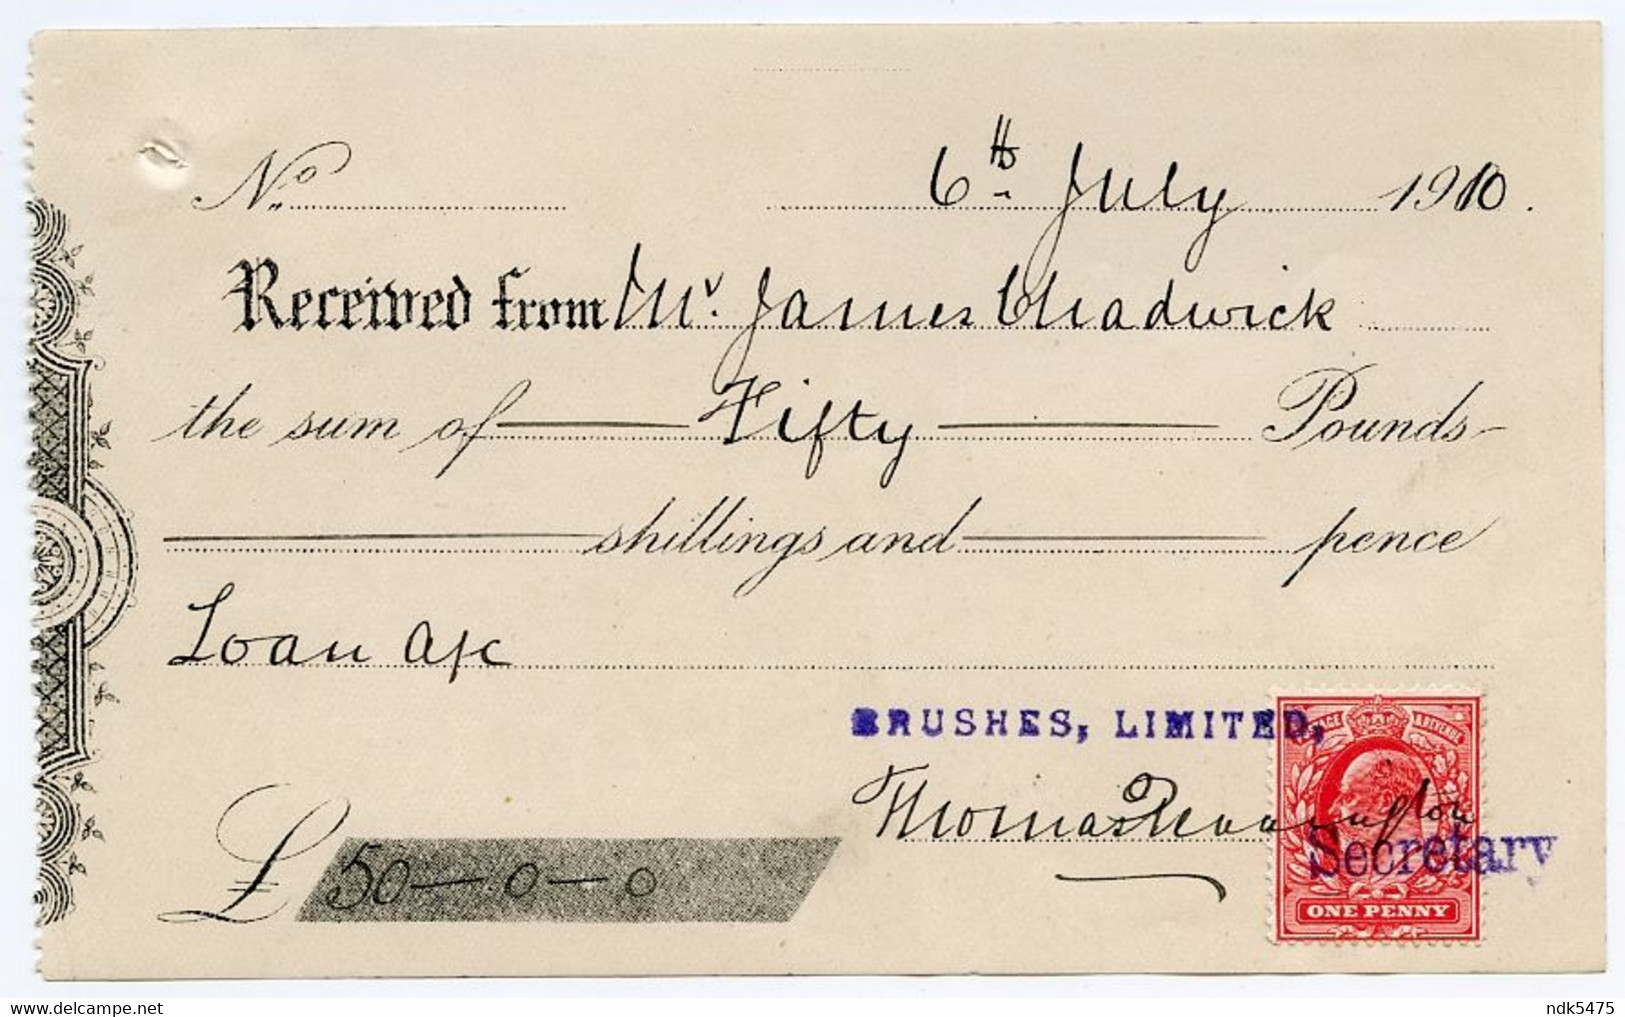 No. 6th July 1910.
Received from Mr. James Chadwick
the sum of Fifty Pounds
shillings and pence
Loan a/c
BRUSHES, LIMITED,
POSTAGE REVENUE
Thomas Pennington
Secretary
£ 50-0-0
ONE PENNY
ndk5475